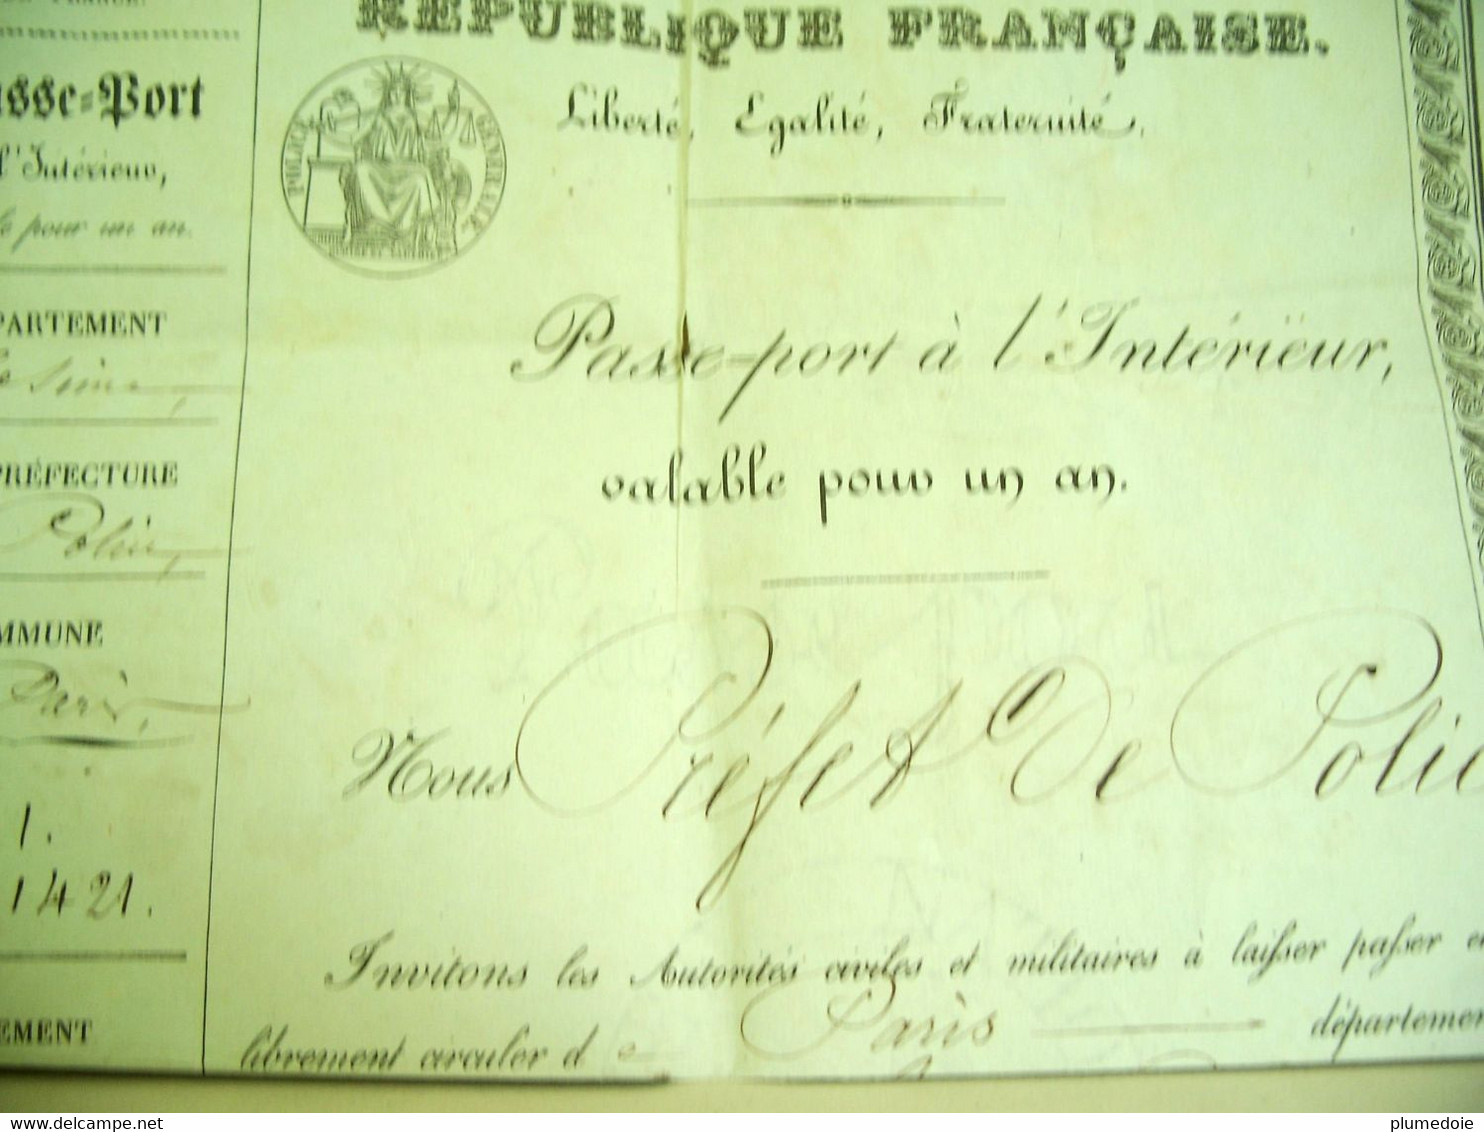 FRANCE.
Passe-Port
l'Intérieur,
pour un an.
PARTEMENT
Seine,
PRÉFECTURE
Police,
MMUNE
Paris,
1.
1421.
EMENT
RÉPUBLIQUE FRANÇAISE.
POLICE GÉNÉRALE
Liberté, Egalité, Fraternité,
Passe-port à l'Intérieur,
valable pour un an.
Nous Préfet De Polic
Invitons les Autorités civiles et militaires à laisser passer e
librement circuler de Paris département
plumedoie